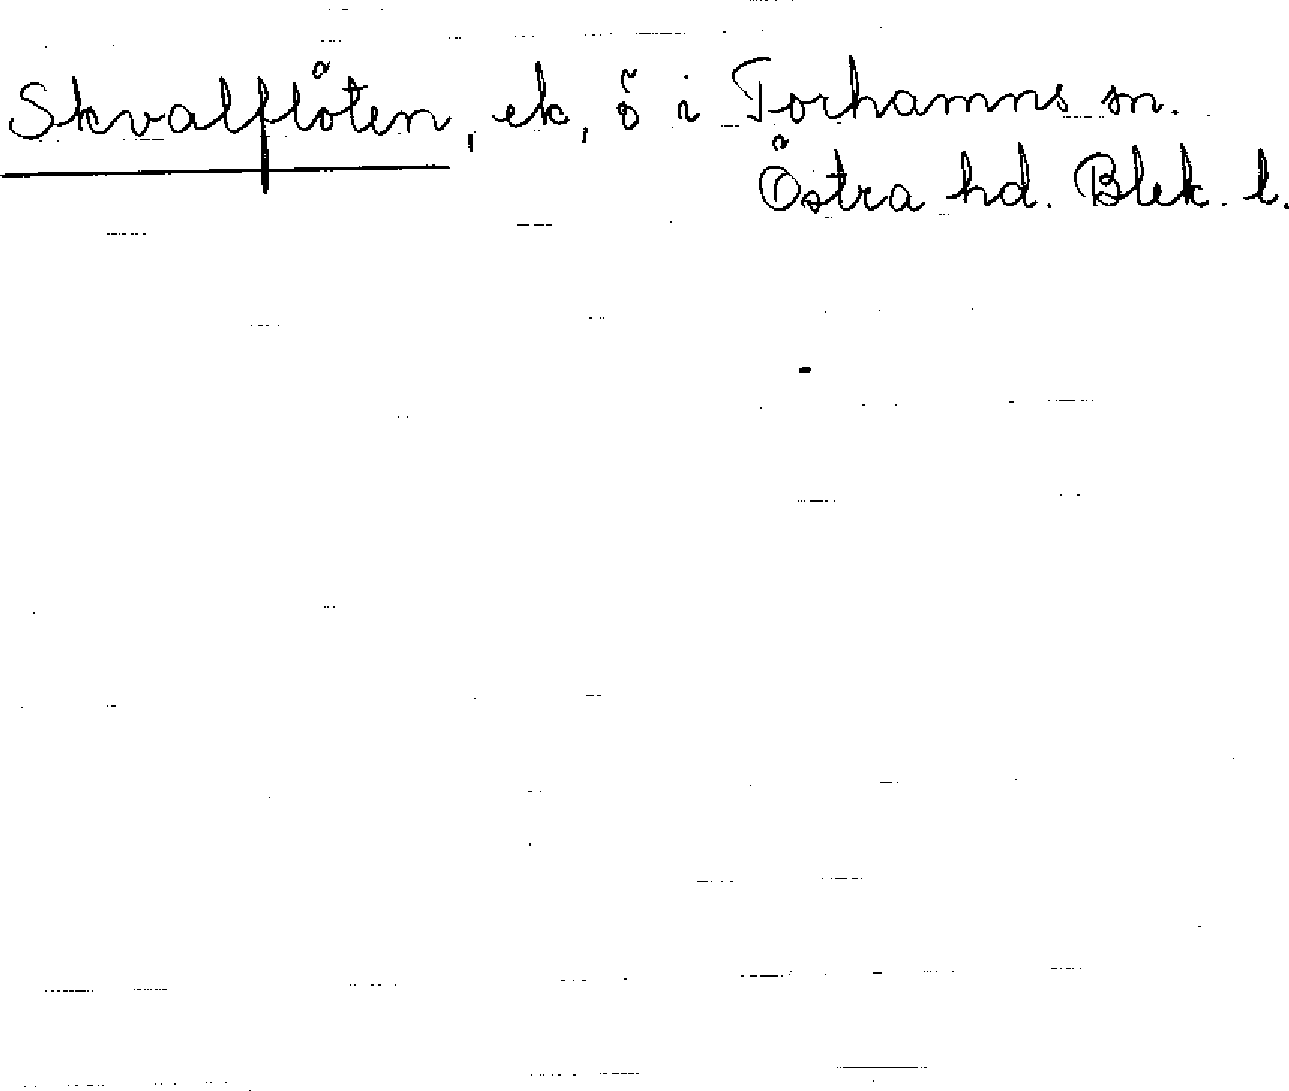 Skvalflöten, ek, ö i Torhamns sn.
Östra hd. Blek. l.